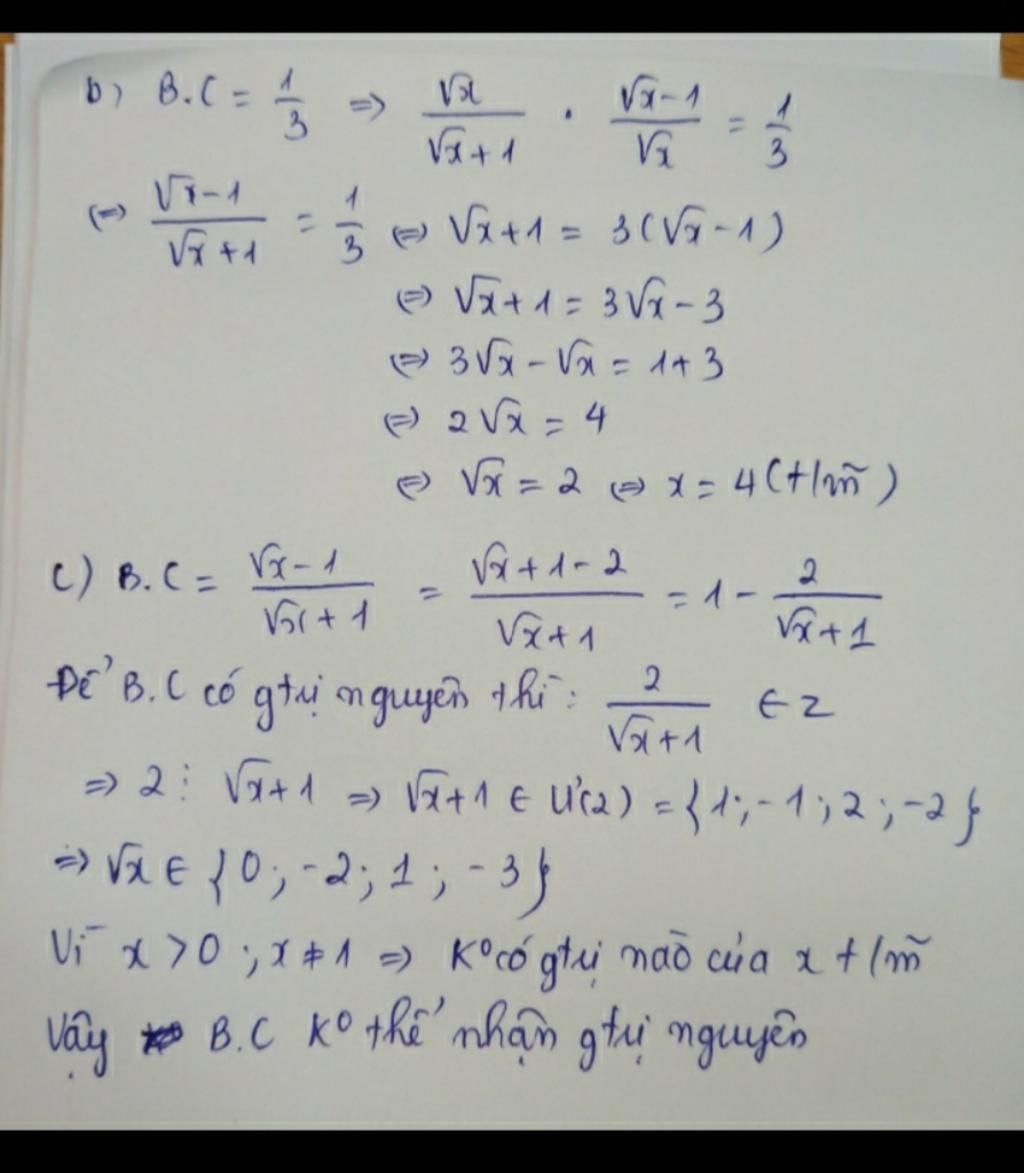 b) B.C = 1/3 => √x/(√x+1) . (√x-1)/√x = 1/3
(=) (√x-1)/(√x+1) = 1/3 (=) √x+1 = 3(√x-1)
(=) √x+1 = 3√x-3
(=) 3√x-√x = 1+3
(=) 2√x = 4
(=) √x = 2 (=) x = 4 (t/mã)
c) B.C = (√x-1)/(√x+1) = (√x+1-2)/(√x+1) = 1 - 2/(√x+1)
Để B.C có gtrị nguyên thì: 2/(√x+1) ∈ Z
=> 2 ⋮ √x+1 => √x+1 ∈ Ư(2) = {1;-1;2;-2}
=> √x ∈ {0;-2;1;-3}
Vì x>0; x≠1 => K° có gtrị nào của x t/mã
Vậy B.C K° thể nhận gtrị nguyên